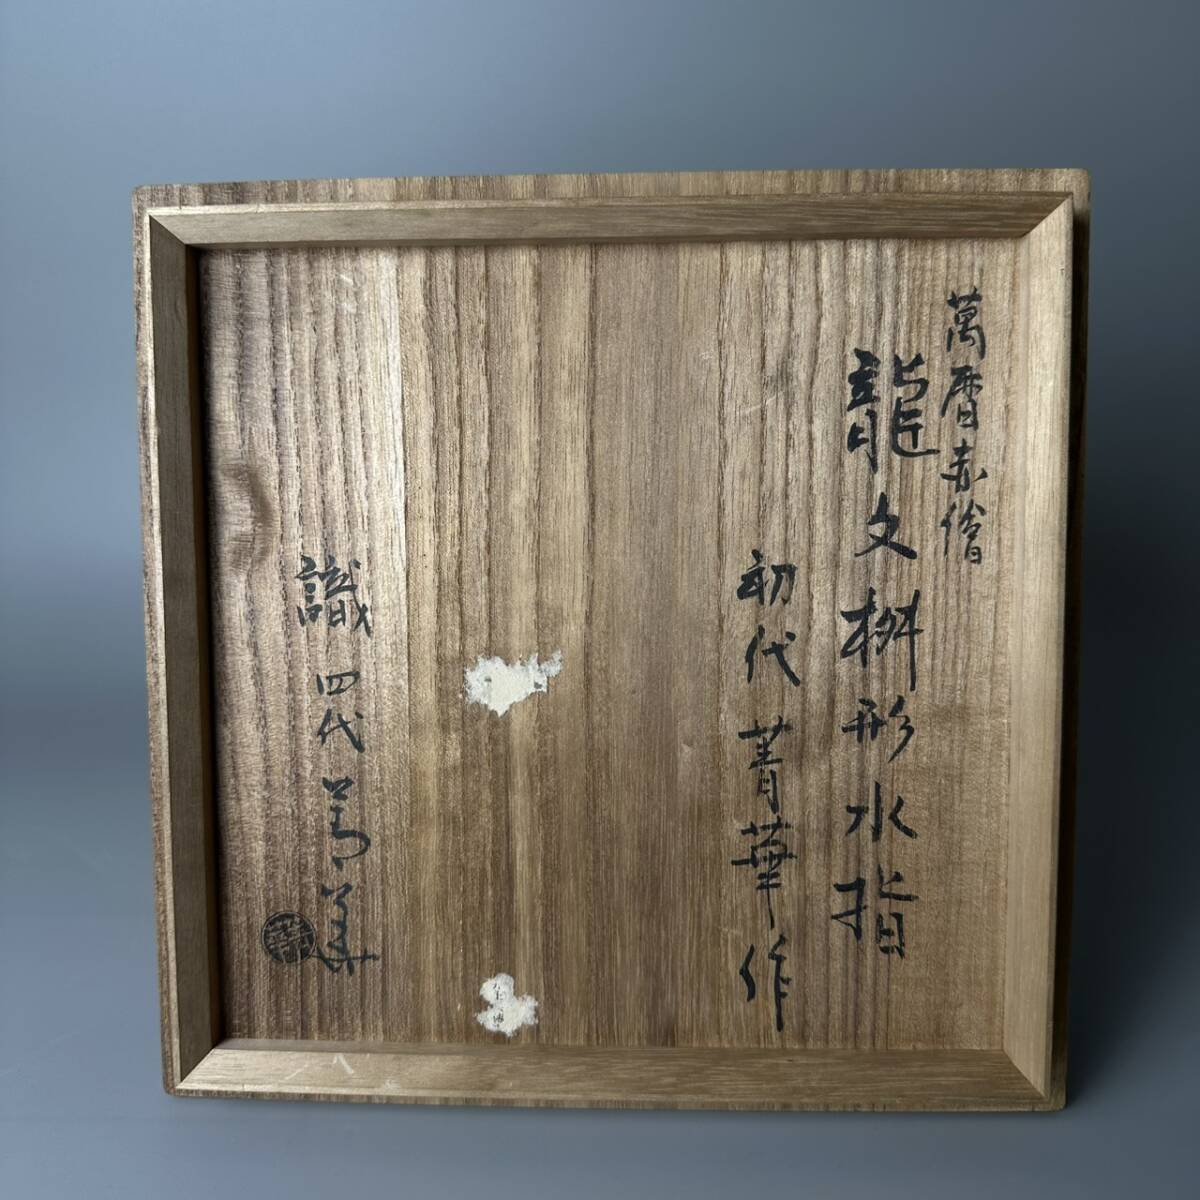 萬暦赤繪
龍文桝形水指
初代 菁華作
識 四代 菁華